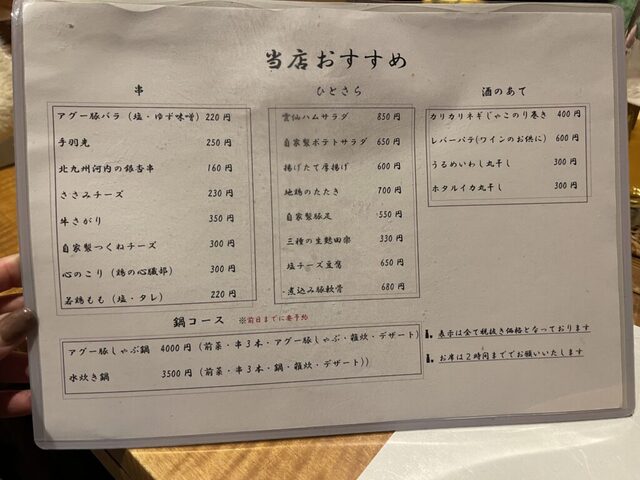 当店おすすめ
串
アグー豚バラ (塩・ゆず味噌) 220円
手羽先 250円
北九州河内の銀杏串 160円
ささみチーズ 230円
牛さがり 350円
自家製つくねチーズ 300円
心のこり (鶏の心臓部) 300円
若鶏もも (塩・タレ) 220円
ひとさら
雲仙ハムサラダ 850円
自家製ポテトサラダ 650円
揚げたて厚揚げ 600円
地鶏のたたき 700円
自家製豚足 550円
三種の生麩田楽 330円
塩チーズ豆腐 650円
煮込み豚軟骨 680円
酒のあて
カリカリネギじゃこのり巻き 400円
レバーパテ(ワインのお供に) 600円
うるめいわし丸干し 300円
ホタルイカ丸干し 300円
鍋コース ※前日までに要予約
アグー豚しゃぶ鍋 4000円 (前菜・串3本・アグー豚しゃぶ・雑炊・デザート)
水炊き鍋 3500円 (前菜・串3本・鍋・雑炊・デザート))
表示は全て税抜き価格となっております
お席は2時間まででお願いいたします